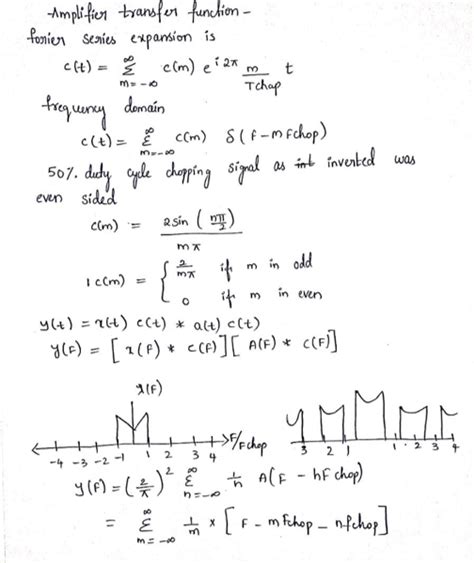 -Amplifier transfer function-
forier series expansion is
c(t) = ∞ Σ m=-∞ c(m) e^(i2π m/Tchop t)
frequency domain
c(t) = ∞ Σ m=-∞ c(m) δ(f-mfchop)
50% duty cycle chopping signal as inverted was
even sided
c(m) = 2sin(mπ/2) / mπ
|c(m) = { 2/mπ if m in odd
0 if m in even
y(t) = x(t) c(t) * a(t) c(t)
y(F) = [x(F) * c(F)][A(F) * c(F)]
x(F)
-4 -3 -2 -1 1 2 3 4 F/Fchop
3 2 1 1 2 3 4
y(F) = (2/π)² ∞ Σ n=-∞ 1/n A(F - hFchop)
= ∞ Σ m=-∞ 1/m x [F - mfchop - nfchop]